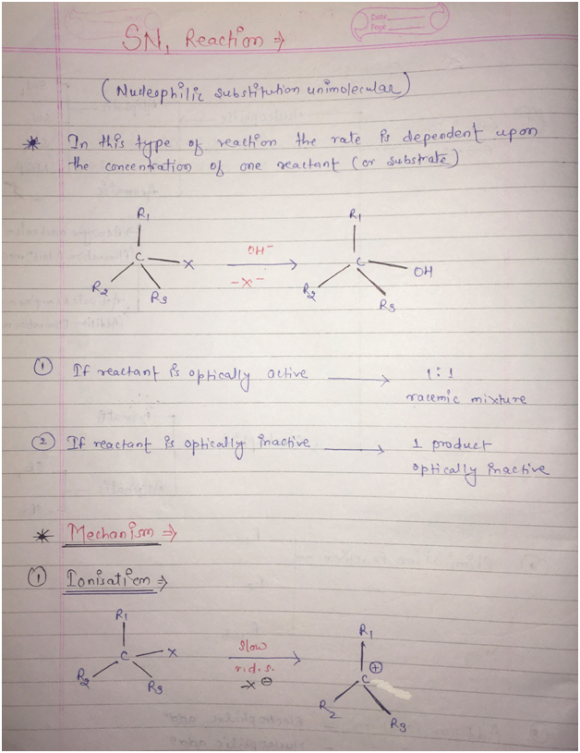 Date
Page
SN1 Reaction ⇒
(Nucleophilic substitution unimolecular)
* In this type of reaction the rate is dependent upon
the concentration of one reactant (or substrate)
R1 R1
C X OH⁻ C OH
R2 R3 -X⁻ R2 R3
① If reactant is optically active ⟶ 1:1
racemic mixture
② If reactant is optically inactive ⟶ 1 product
optically inactive
* Mechanism ⇒
① Ionisation ⇒
R1 R1
C X slow C ⊕
R2 R3 r.d.s. R2 R3
-X ⊖